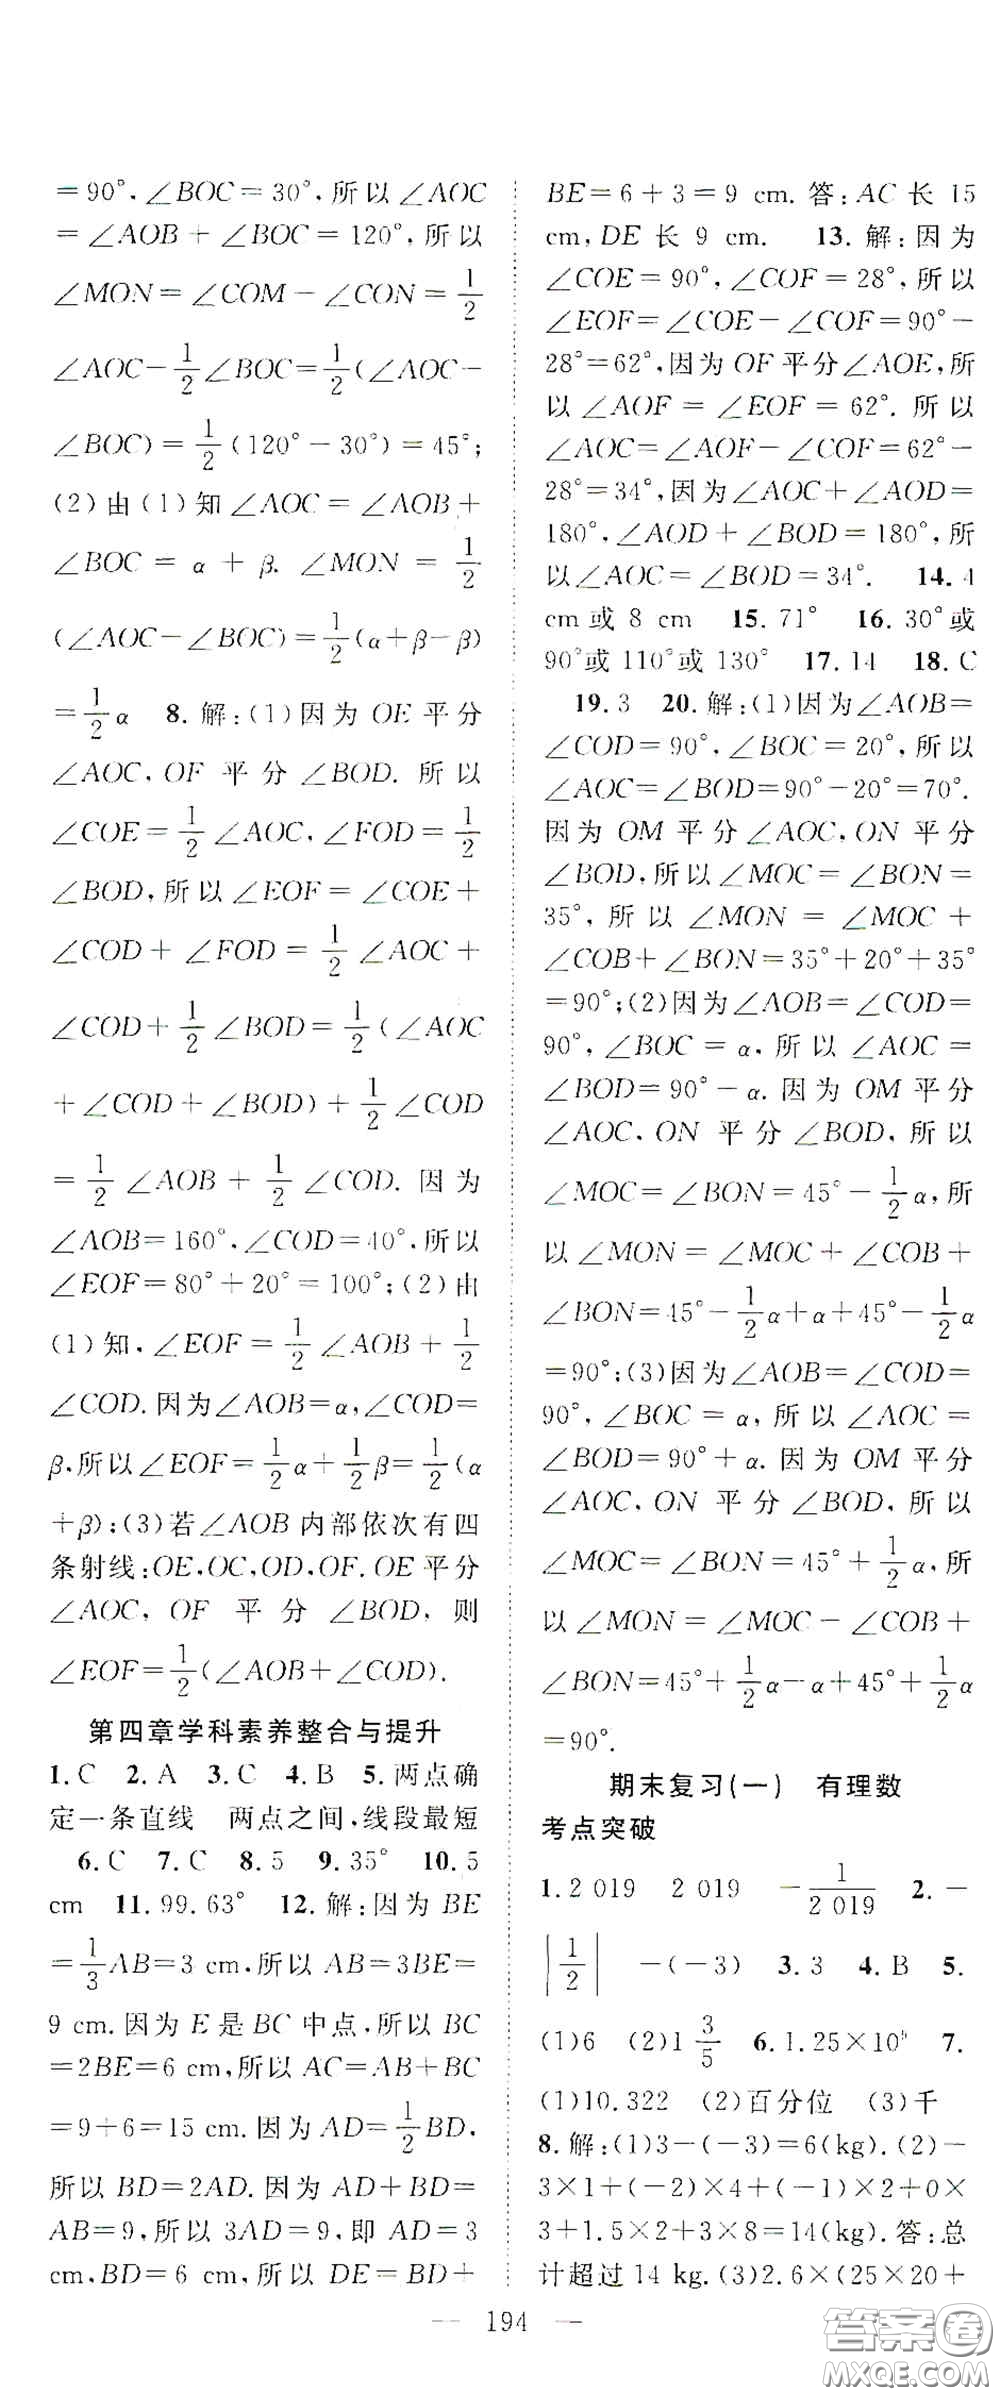 =90°,∠BOC=30°,所以∠AOC
=∠AOB+∠BOC=120°,所以
∠MON=∠COM-∠CON=1/2
∠AOC-1/2∠BOC=1/2(∠AOC-
∠BOC)=1/2(120°-30°)=45°;
(2)由(1)知∠AOC=∠AOB+
∠BOC=α+β.∠MON=1/2
(∠AOC-∠BOC)=1/2(α+β-β)
=1/2α 8.解:(1)因为OE平分
∠AOC,OF平分∠BOD.所以
∠COE=1/2∠AOC,∠FOD=1/2
∠BOD,所以∠EOF=∠COE+
∠COD+∠FOD=1/2∠AOC+
∠COD+1/2∠BOD=1/2(∠AOC
+∠COD+∠BOD)+1/2∠COD
=1/2∠AOB+1/2∠COD.因为
∠AOB=160°,∠COD=40°,所以
∠EOF=80°+20°=100°;(2)由
(1)知,∠EOF=1/2∠AOB+1/2
∠COD.因为∠AOB=α,∠COD=
β,所以∠EOF=1/2α+1/2β=1/2(α
+β);(3)若∠AOB内部依次有四
条射线:OE,OC,OD,OF.OE平分
∠AOC,OF平分∠BOD,则
∠EOF=1/2(∠AOB+∠COD).
第四章学科素养整合与提升
1.C 2.A 3.C 4.B 5.两点确
定一条直线 两点之间,线段最短
6.C 7.C 8.5 9.35° 10.5
cm 11.99.63° 12.解:因为BE
=1/3AB=3 cm,所以AB=3BE=
9 cm.因为E是BC中点,所以BC
=2BE=6 cm,所以AC=AB+BC
=9+6=15 cm.因为AD=1/2BD,
所以BD=2AD.因为AD+BD=
AB=9,所以3AD=9,即AD=3
cm,BD=6 cm,所以DE=BD+
BE=6+3=9 cm.答:AC长15
cm,DE长9 cm. 13.解:因为
∠COE=90°,∠COF=28°,所以
∠EOF=∠COE-∠COF=90°-
28°=62°,因为OF平分∠AOE,所
以∠AOF=∠EOF=62°.所以
∠AOC=∠AOF-∠COF=62°-
28°=34°,因为∠AOC+∠AOD=
180°,∠AOD+∠BOD=180°,所
以∠AOC=∠BOD=34°. 14.4
cm或8 cm 15.71° 16.30°或
90°或110°或130° 17.14 18.C
19.3 20.解:(1)因为∠AOB=
∠COD=90°,∠BOC=20°,所以
∠AOC=∠BOD=90°-20°=70°.
因为OM平分∠AOC,ON平分
∠BOD,所以∠MOC=∠BON=
35°,所以∠MON=∠MOC+
∠COB+∠BON=35°+20°+35°
=90°;(2)因为∠AOB=∠COD=
90°,∠BOC=α,所以∠AOC=
∠BOD=90°-α.因为OM平分
∠AOC,ON平分∠BOD,所以
∠MOC=∠BON=45°-1/2α,所
以∠MON=∠MOC+∠COB+
∠BON=45°-1/2α+α+45°-1/2α
=90°;(3)因为∠AOB=∠COD=
90°,∠BOC=α,所以∠AOC=
∠BOD=90°+α.因为OM平分
∠AOC,ON平分∠BOD,所以
∠MOC=∠BON=45°+1/2α,所
以∠MON=∠MOC-∠COB+
∠BON=45°+1/2α-α+45°+1/2α
=90°.
期末复习(一) 有理数
考点突破
1.2 019 2 019 -1/2 019 2.-
|1/2| -(-3) 3.3 4.B 5.
(1)6 (2)1 3/5 6.1.25×10 7.
(1)10.322 (2)百分位 (3)千
8.解:(1)3-(-3)=6(kg).(2)-
3×1+(-2)×4+(-1)×2+0×
3+1.5×2+3×8=14(kg).答:总
计超过14 kg.(3)2.6×(25×20+
— 194 —
答案圈
MXQE.COM